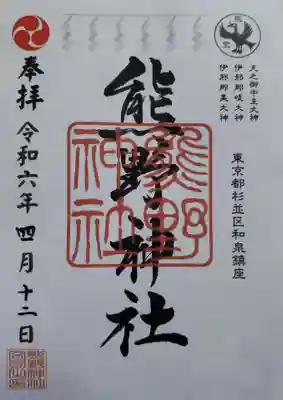 天之御中主大神
伊邪那岐大神
伊邪那美大神
東京都杉並区和泉鎮座
熊野神社
熊野神社
奉拝 令和六年 四月 十二日